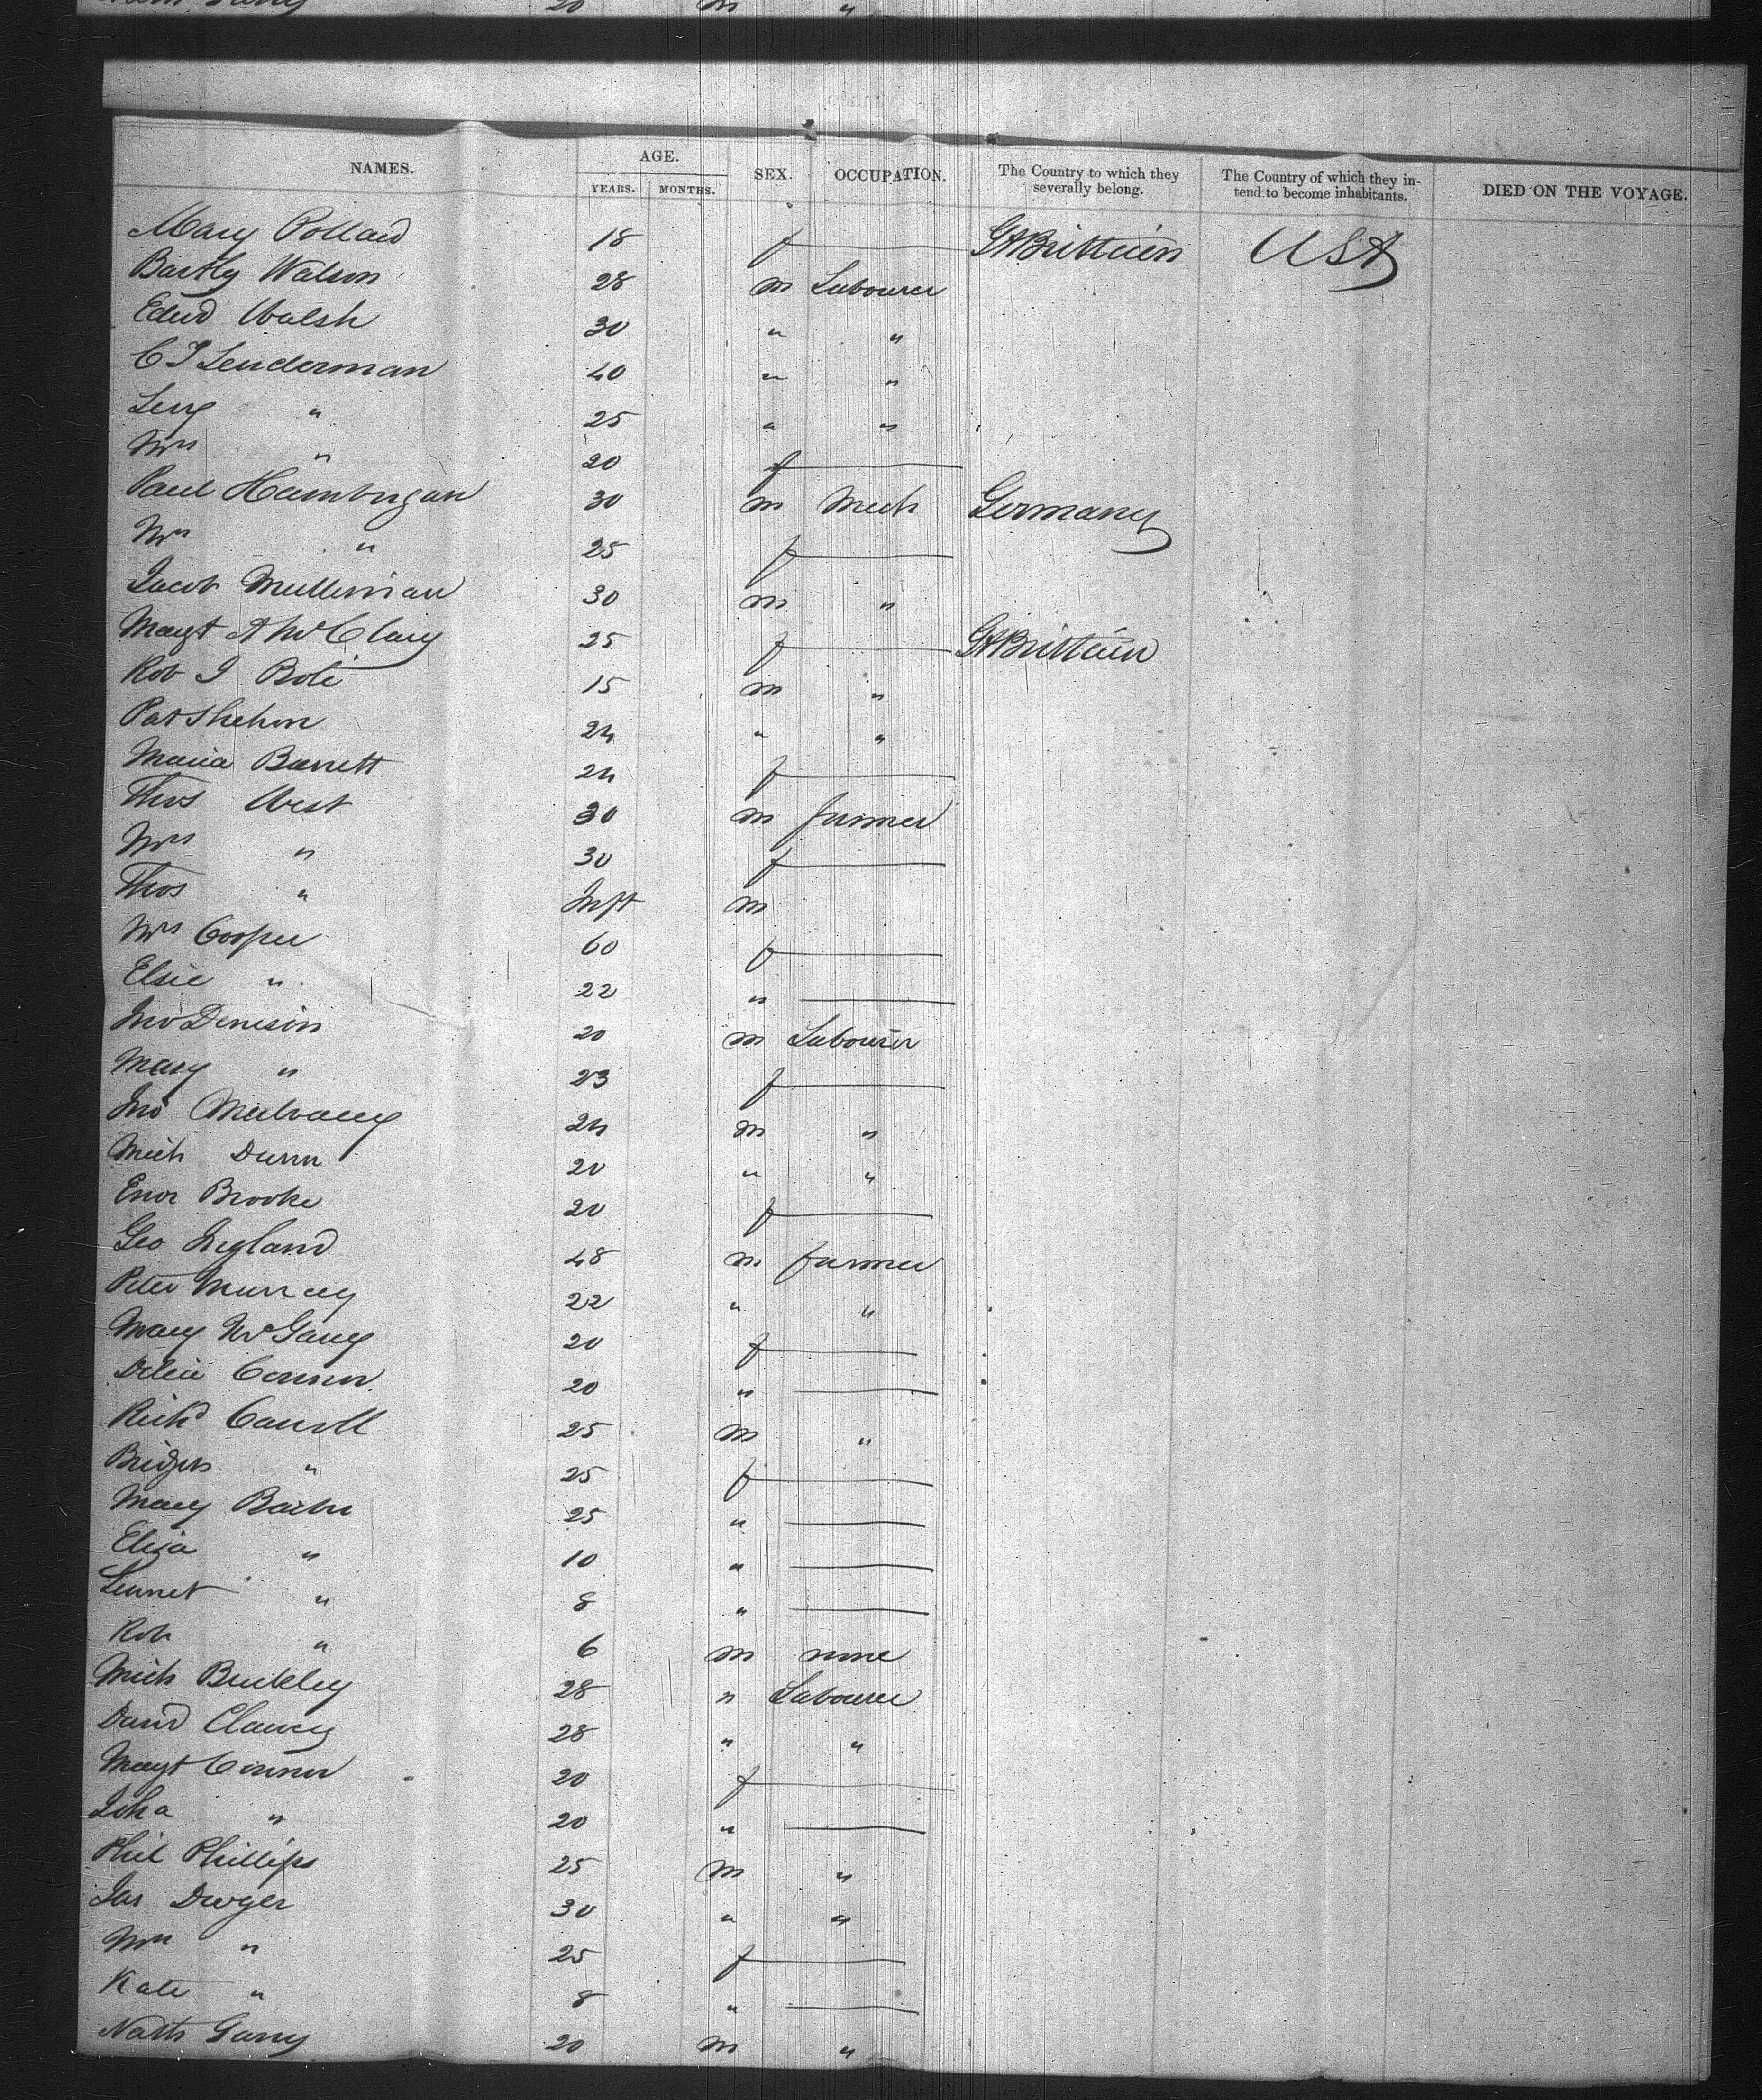 20 m "
NAMES. AGE. SEX. OCCUPATION. The Country to which they severally belong. The Country of which they intend to become inhabitants. DIED ON THE VOYAGE.
YEARS. MONTHS.
Mary Pollard 18 f — Gt Brittain USA
Bartly Watson 28 m Labourer
Edwd Walsh 30 " "
C J Lenderman 40 " "
" 25 " "
Mrs " 20 f —
Paul 30 m Mech Germany
Mrs " 25 f —
Jacob Mulliman 30 m "
Margt A McClary 25 f — Gt Brittain
Rob J 15 m "
Pat Shehon 24 " "
Maria Barrett 24 f —
Thos West 30 m farmer
Mrs " 30 f —
Thos " Inft m
Mrs Cooper 60 f —
Elsie " 22 " —
Jno Denison 20 m Labourer
Mary " 23 f —
Jno Mulvaney 24 m "
Mich Dunn 20 " "
Brooke 20 f —
Geo 48 m farmer
Peter Murray 22 " "
Mary McGarry 20 f —
Delia Connor 20 " —
Richd Carroll 25 m "
" 25 f —
Mary 25 " —
Eliza " 10 " —
" 8 " —
Rob " 6 m none
Mich Buckley 28 " Labourer
David Clancy 28 " "
Margt Connor 20 f —
Joha " 20 " —
Phil Phillips 25 m "
Jas Dwyer 30 " "
Mrs " 25 f —
Kate " 8 " —
20 m "